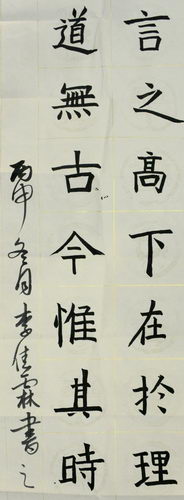 言之高下在於理
道無古今惟其時
丙申冬月李佳霖書之